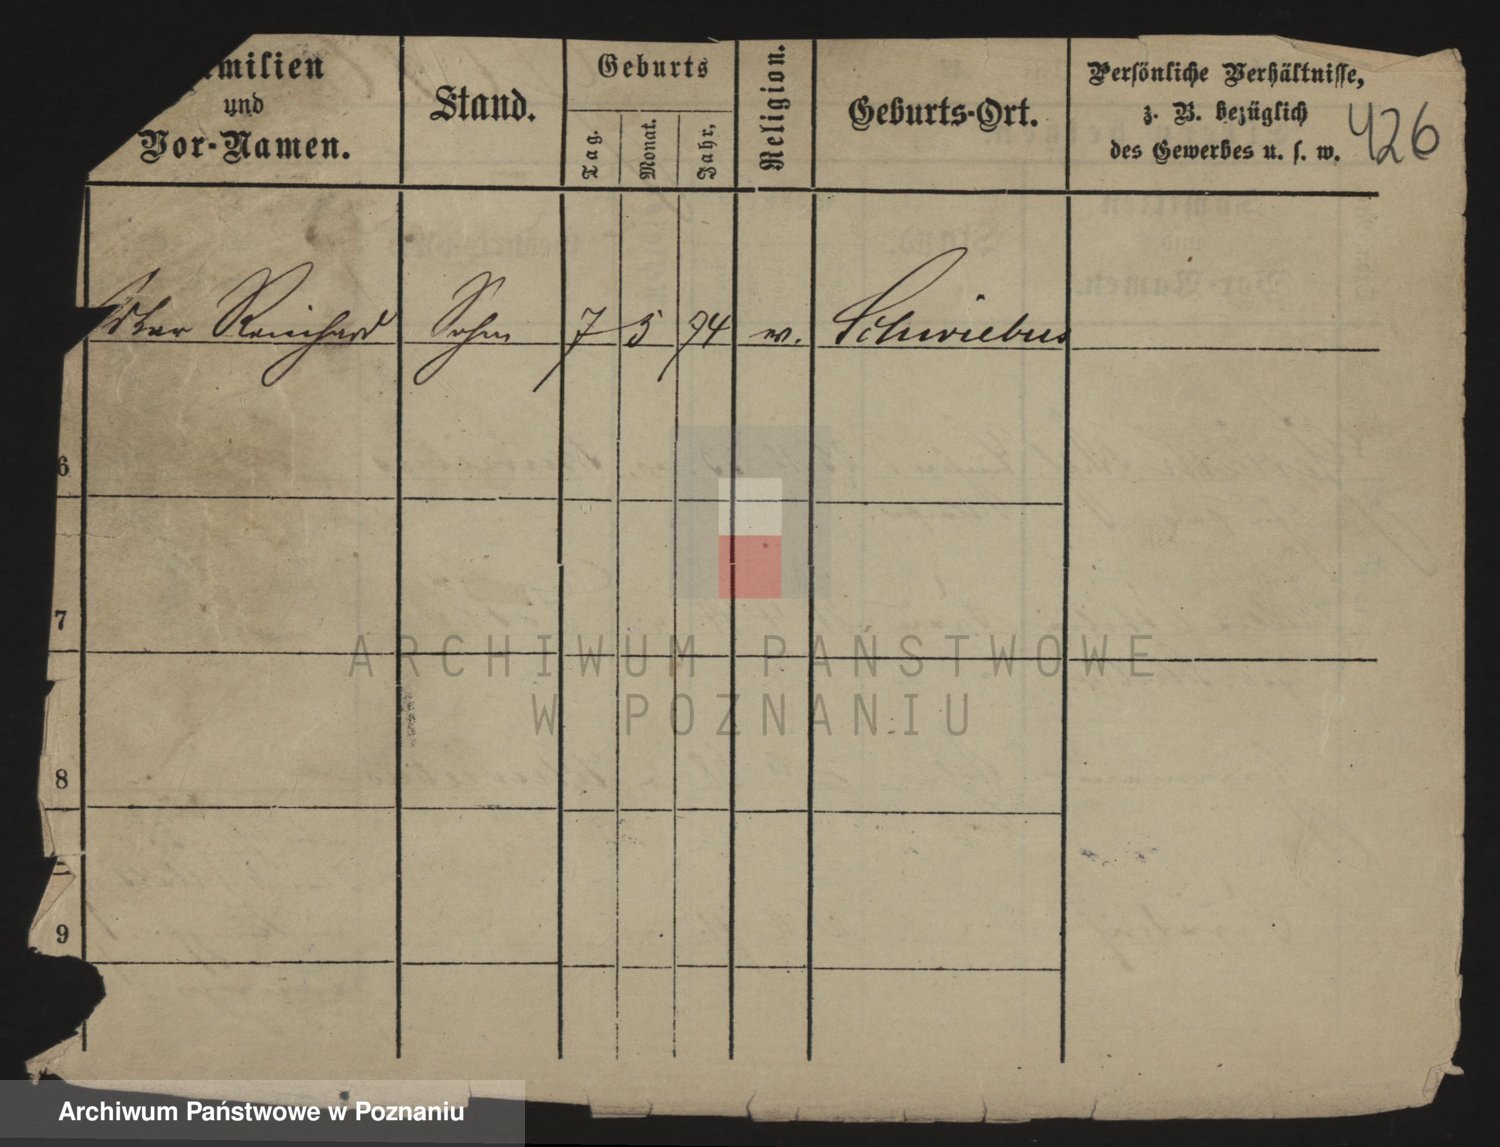 milien
und
Vor-Namen.
Stand.
Geburts
Tag.
Monat.
Jahr.
Religion.
Geburts-Ort.
Persönliche Verhältnisse,
z. B. bezüglich
des Gewerbes u. s. w.
426
Reinhard Sohn 7 5 74 Schwiebus
6
7
8
9
ARCHIWUM PAŃSTWOWE
W POZNANIU
Archiwum Państwowe w Poznaniu